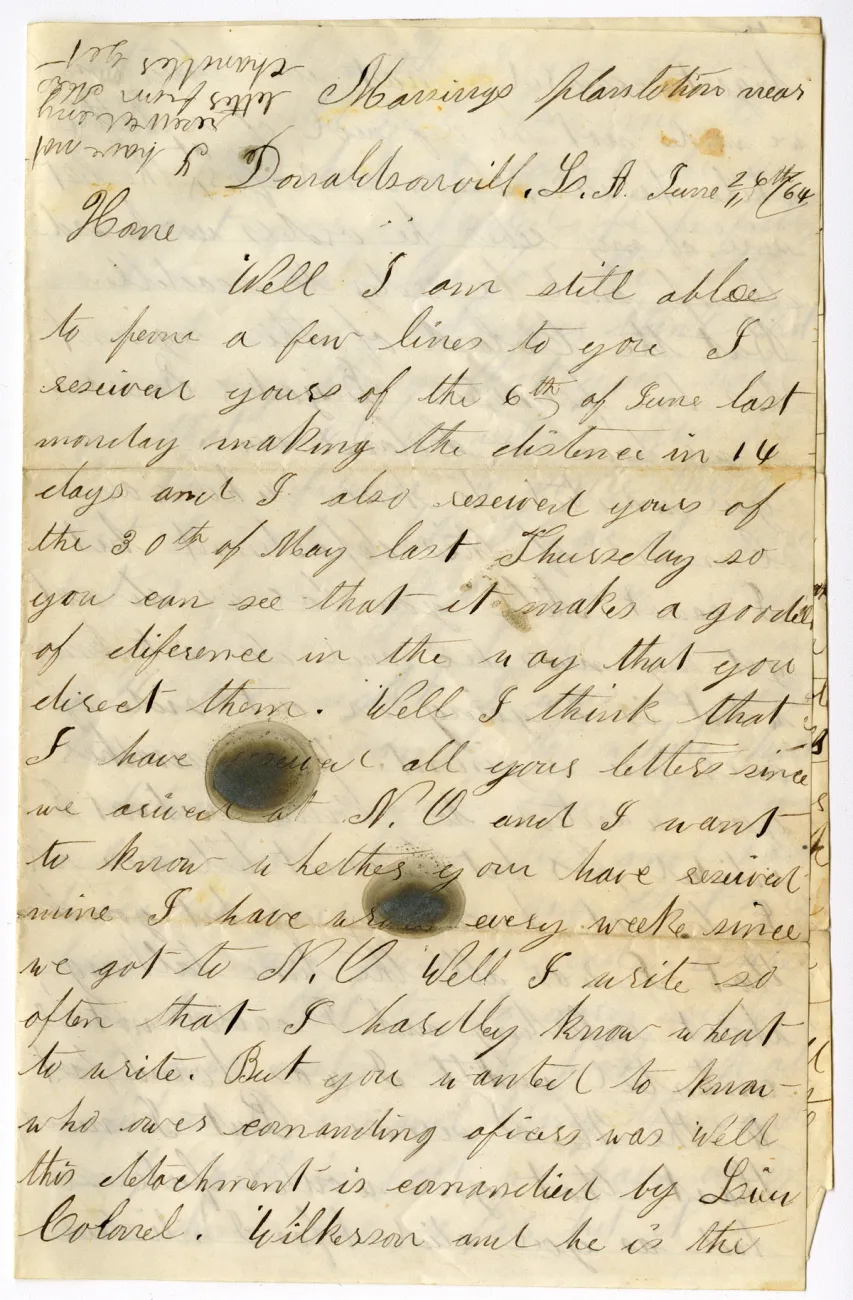 I have not
received any
letter from Mr
Chandler yet
Mansings plantation near
Donaldsonvill, L. A. June 26th/64
Home
Well I am still able
to penn a few lines to you I
reseived yours of the 6th of June last
monday making the distence in 14
days and I also reseived yours of
the 30th of May last Thursday so
you can see that it makes a goodell
of diference in the way that you
direct them. Well I think that
I have reseived all yours letters since
we arived at N. O and I want
to know whether your have reseived
mine I have wrote every weeke since
we got to N. O Well I write so
often that I hardley know wheat
to write. But you wanted to know
who owers comanding oficers was Well
this detachment is comandied by Lieu
Colonel. Wilkerson and he is the